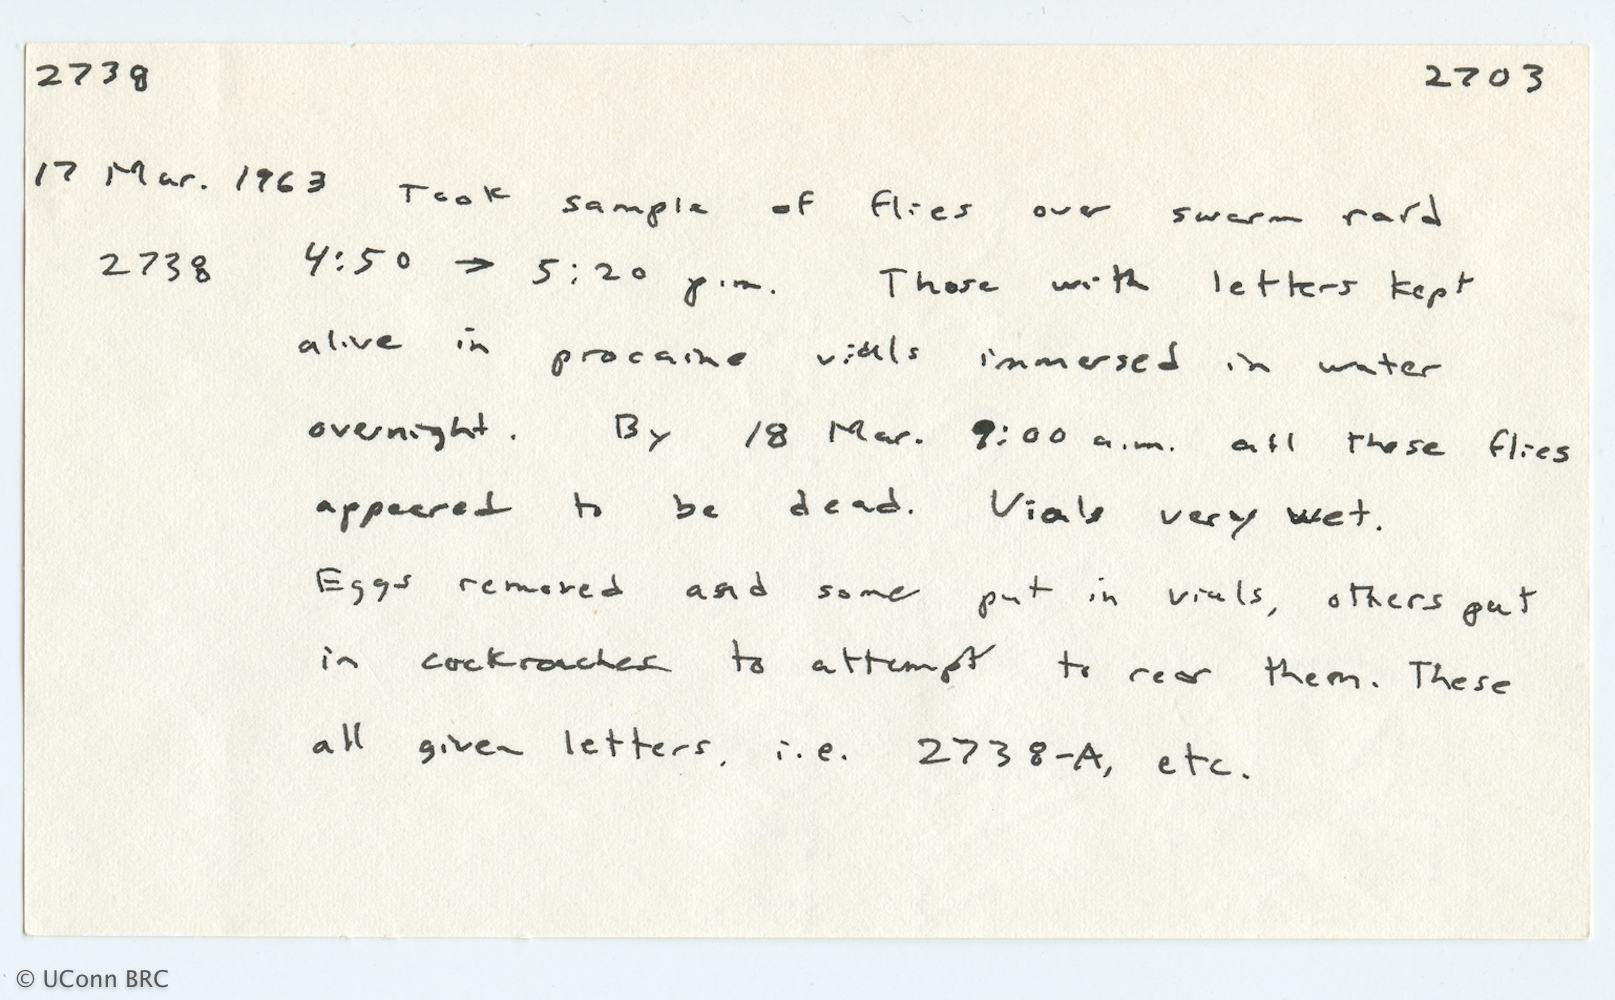 2738 2703
17 Mar. 1963 Took sample of flies over swarm raid
2738 4:50 → 5:20 p.m. Those with letters kept
alive in procaine vials immersed in water
overnight. By 18 Mar. 9:00 a.m. all these flies
appeared to be dead. Vials very wet.
Eggs removed and some put in vials, others put
in cockroaches to attempt to rear them. These
all given letters, i.e. 2738-A, etc.
© UConn BRC